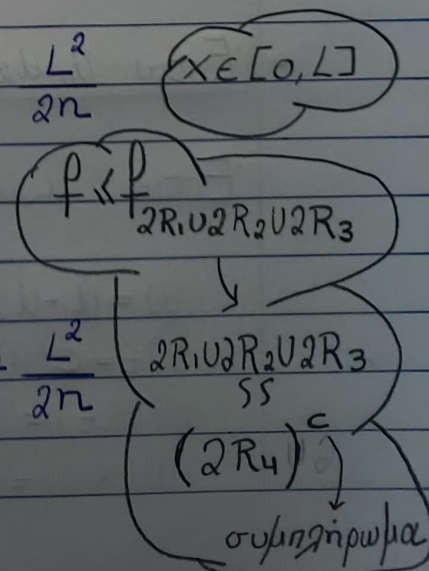 L²/2n x∈[0,L]
f≤f 2R₁∪2R₂∪2R₃
↓
- L²/2n 2R₁∪2R₂∪2R₃
SS
(2R₄)ᶜ
συμπλήρωμα